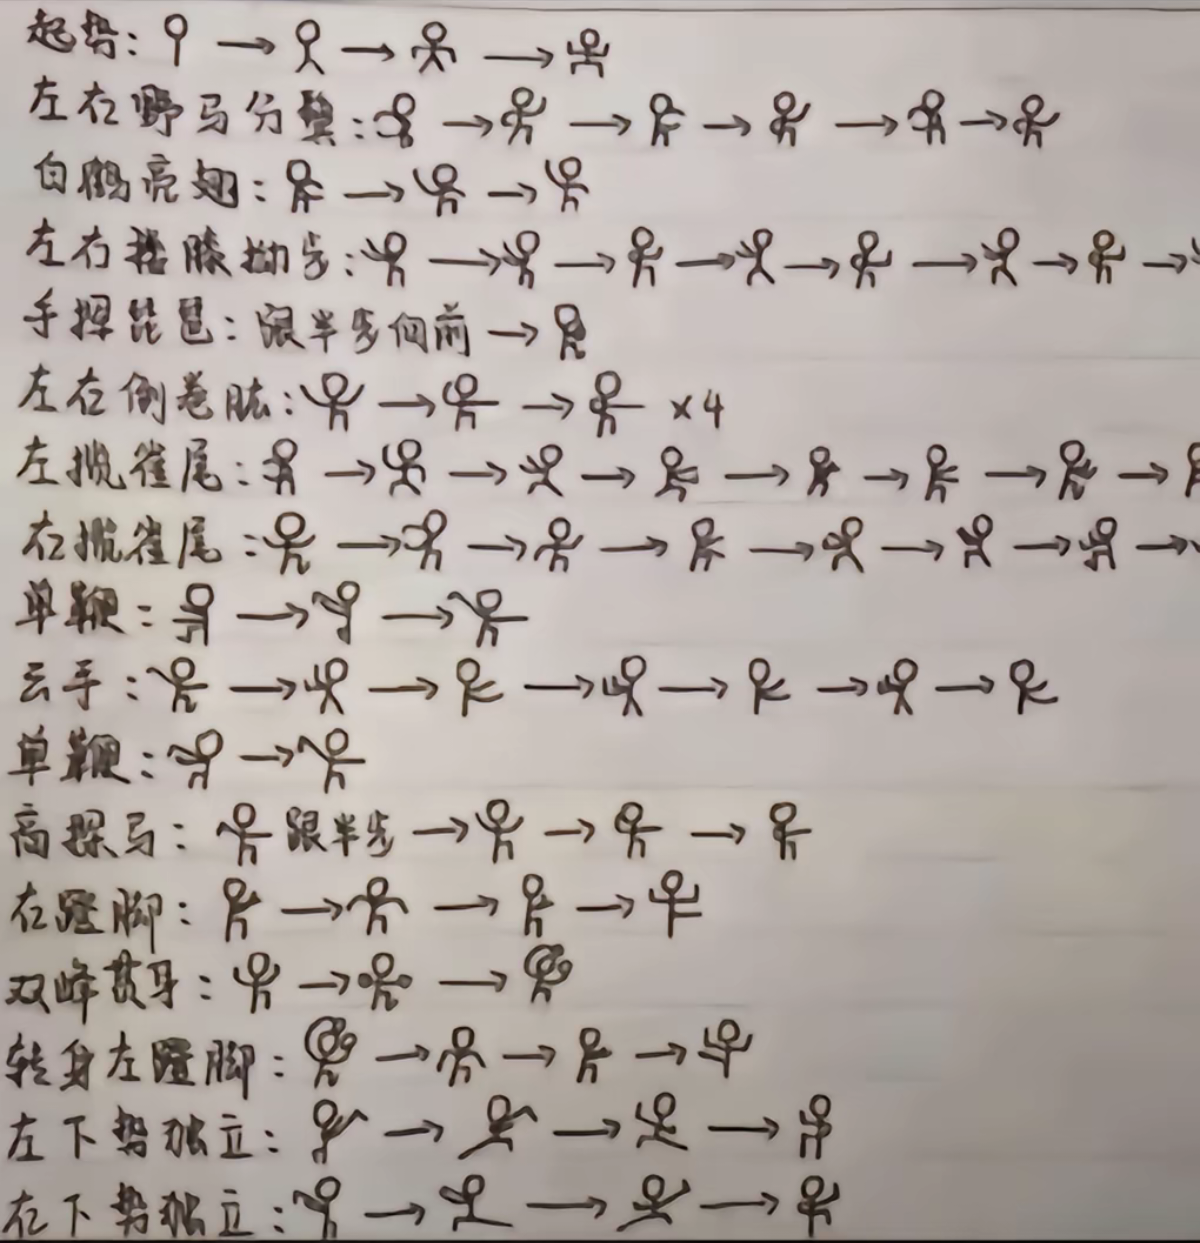 起势:
左右野马分鬃:
白鹤亮翅:
左右搂膝拗步:
手挥琵琶:跟半步向前
左右倒卷肱:×4
左揽雀尾:
右揽雀尾:
单鞭:
云手:
单鞭:
高探马:跟半步
右蹬脚:
双峰贯耳:
转身左蹬脚:
左下势独立:
右下势独立: